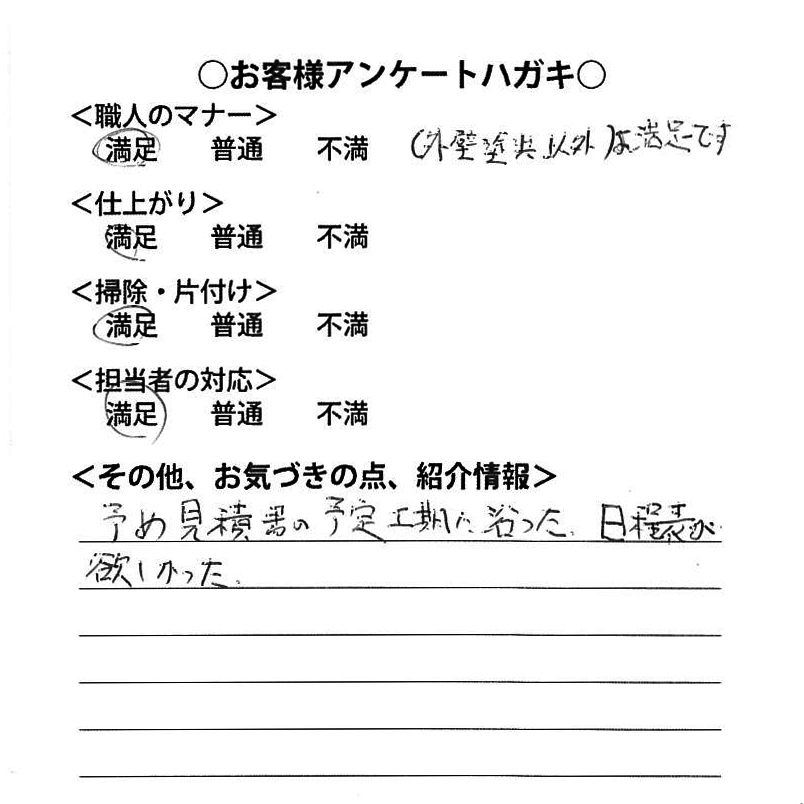 ○お客様アンケートハガキ○
<職人のマナー>
満足 普通 不満 (外壁塗装以外)は満足です
<仕上がり>
満足 普通 不満
<掃除・片付け>
満足 普通 不満
<担当者の対応>
満足 普通 不満
<その他、お気づきの点、紹介情報>
予め見積書の予定工期に沿った、日程表が
欲しかった。